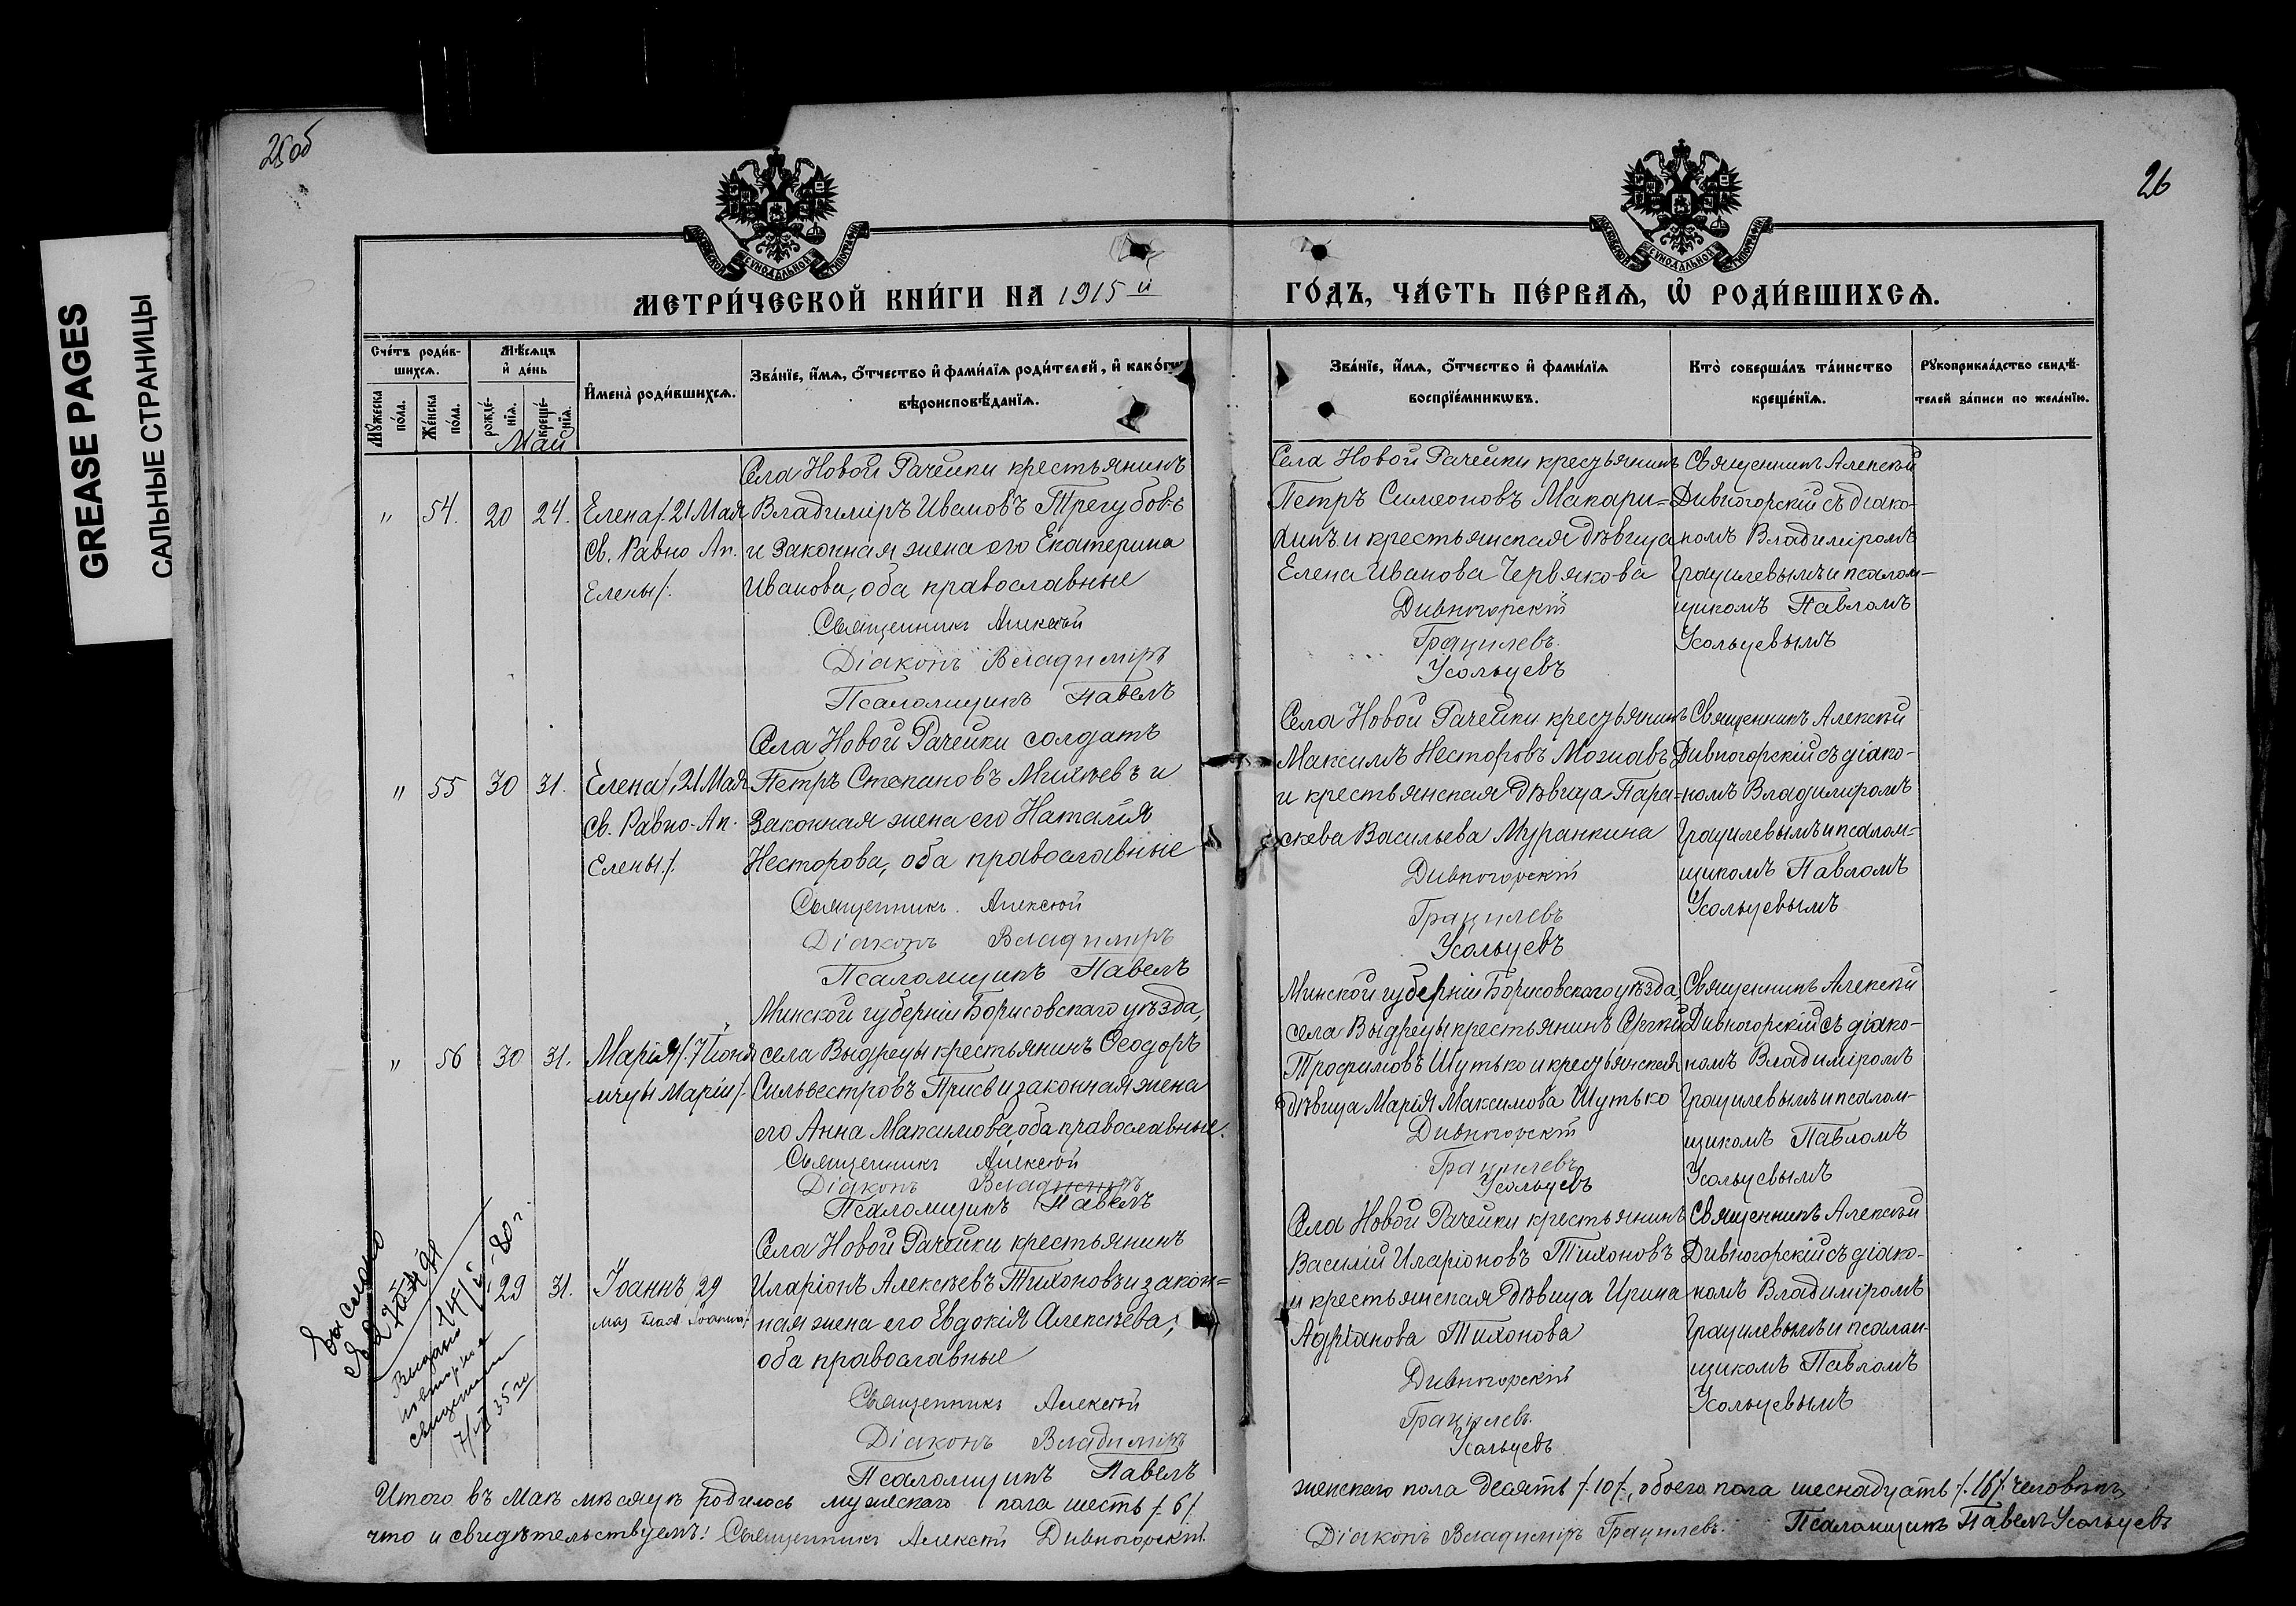 25об
26
GREASE PAGES
САЛЬНЫЕ СТРАНИЦЫ
МОСКОВСКОЙ СѴНОДАЛЬНОЙ ТИПОГРАФІИ
МОСКОВСКОЙ СѴНОДАЛЬНОЙ ТИПОГРАФІИ
МЕТРИ́ЧЕСКОЙ КНИ́ГИ НА 1915й
ГО́ДЪ, ЧА́СТЬ ПЕ́РВАѦ, Ѡ҆ РОДИ́ВШИХСѦ.
Сче́тъ роди́в-
шихсѧ.
Мꙋ́жеска по́ла.
Же́нска по́ла.
Мѣ́сѧцъ
и҆ де́нь
рожде́-
нїѧ.
креще́-
нїѧ.
И҆мена̀ роди́вшихсѧ.
Зва́нїе, и҆́мѧ, ѻ҆́тчество и҆ фами́лїѧ роди́телей, и҆ како́гѡ
вѣроисповѣ́данїѧ.
Зва́нїе, и҆́мѧ, ѻ҆́тчество и҆ фами́лїѧ
воспрїе́мникѡвъ.
Кто̀ соверша́лъ та́инство
креще́нїѧ.
Рꙋкоприкла́дство свидѣ́-
телей за́писи по жела́нїю.
Май
"
54.
20
24.
Елена /. 21 Мая
Св. Равно Ап.
Елены /.
Села Новой Рачейки крестьянинъ
Владиміръ Ивановъ Трегубовъ
и законная жена его Екатерина
Иванова, оба православные
Священникъ Алексѣй
Діаконъ Владиміръ
Псаломщикъ Павелъ
Села Новой Рачейки крестьянинъ
Петръ Симеоновъ Макари-
хинъ и крестьянская дѣвица
Елена Иванова Червякова
Дивногорскій
Грацилевъ
Усольцевъ
Священникъ Алексѣй
Дивногорскій съ діако-
номъ Владиміромъ
Грацилевымъ и псалом-
щикомъ Павломъ
Усольцевымъ
"
55
30
31.
Елена /. 21 Мая
Св. Равно-Ап.
Елены /.
Села Новой Рачейки солдатъ
Петръ Степановъ Михѣевъ и
Законная жена его Наталія
Несторова, оба православные
Священникъ Алексѣй
Діаконъ Владиміръ
Псаломщикъ Павелъ
Села Новой Рачейки крестьянинъ
Максимъ Несторовъ
и крестьянская дѣвица Пара-
скева Васильева Муранкина
Дивногорскій
Грацилевъ
Усольцевъ
Священникъ Алексѣй
Дивногорскій съ діако-
номъ Владиміромъ
Грацилевымъ и псалом-
щикомъ Павломъ
Усольцевымъ
"
56
30
31.
Марія /. 7 Іюня
мчцы Маріи /.
Минской губерніи Борисовскаго уѣзда,
села Выдрецы крестьянинъ Ѳеодоръ
Сильвестровъ и законная жена
его Анна Максимова, оба православные.
Священникъ Алексѣй
Діаконъ Владиміръ
Псаломщикъ Павелъ
Минской губерніи Борисовскаго уѣзда,
села Выдрецы крестьянинъ Сергій
Трофимовъ Шутько и крестьянская
дѣвица Марія Максимова Шутько
Дивногорскій
Грацилевъ
Усольцевъ
Священникъ Алексѣй
Дивногорскій съ діако-
номъ Владиміромъ
Грацилевымъ и псалом-
щикомъ Павломъ
Усольцевымъ
29
31.
Іоаннъ 29
Села Новой Рачейки крестьянинъ
Иларіонъ Алексѣевъ Тихоновъ и закон-
ная жена его Евдокія Алексѣева,
оба православные
Священникъ Алексѣй
Діаконъ Владиміръ
Псаломщикъ Павелъ
Села Новой Рачейки крестьянинъ
Василій Иларіоновъ Тихоновъ
и крестьянская дѣвица Ирина
Адріанова Тихонова
Дивногорскій
Грацилевъ.
Усольцевъ
Священникъ Алексѣй
Дивногорскій съ діако-
номъ Владиміромъ
Грацилевымъ и псалом-
щикомъ Павломъ
Усольцевымъ
Выдано
повторное
Итого въ маѣ мѣсяцѣ родилось мужескаго пола шесть /. 6 /.
женскаго пола десять /. 10 /., обоего пола шеснадцать /. 16 /. человѣкъ,
что и свидѣтельствуемъ: Священникъ Алексѣй Дивногорскій.
Діаконъ Владиміръ Грацилевъ. Псаломщикъ Павелъ Усольцевъ